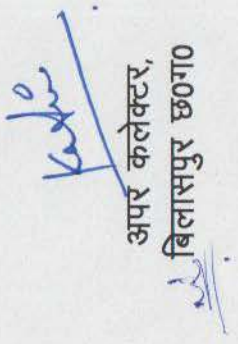 अपर कलेक्टर,
बिलासपुर छ०ग०